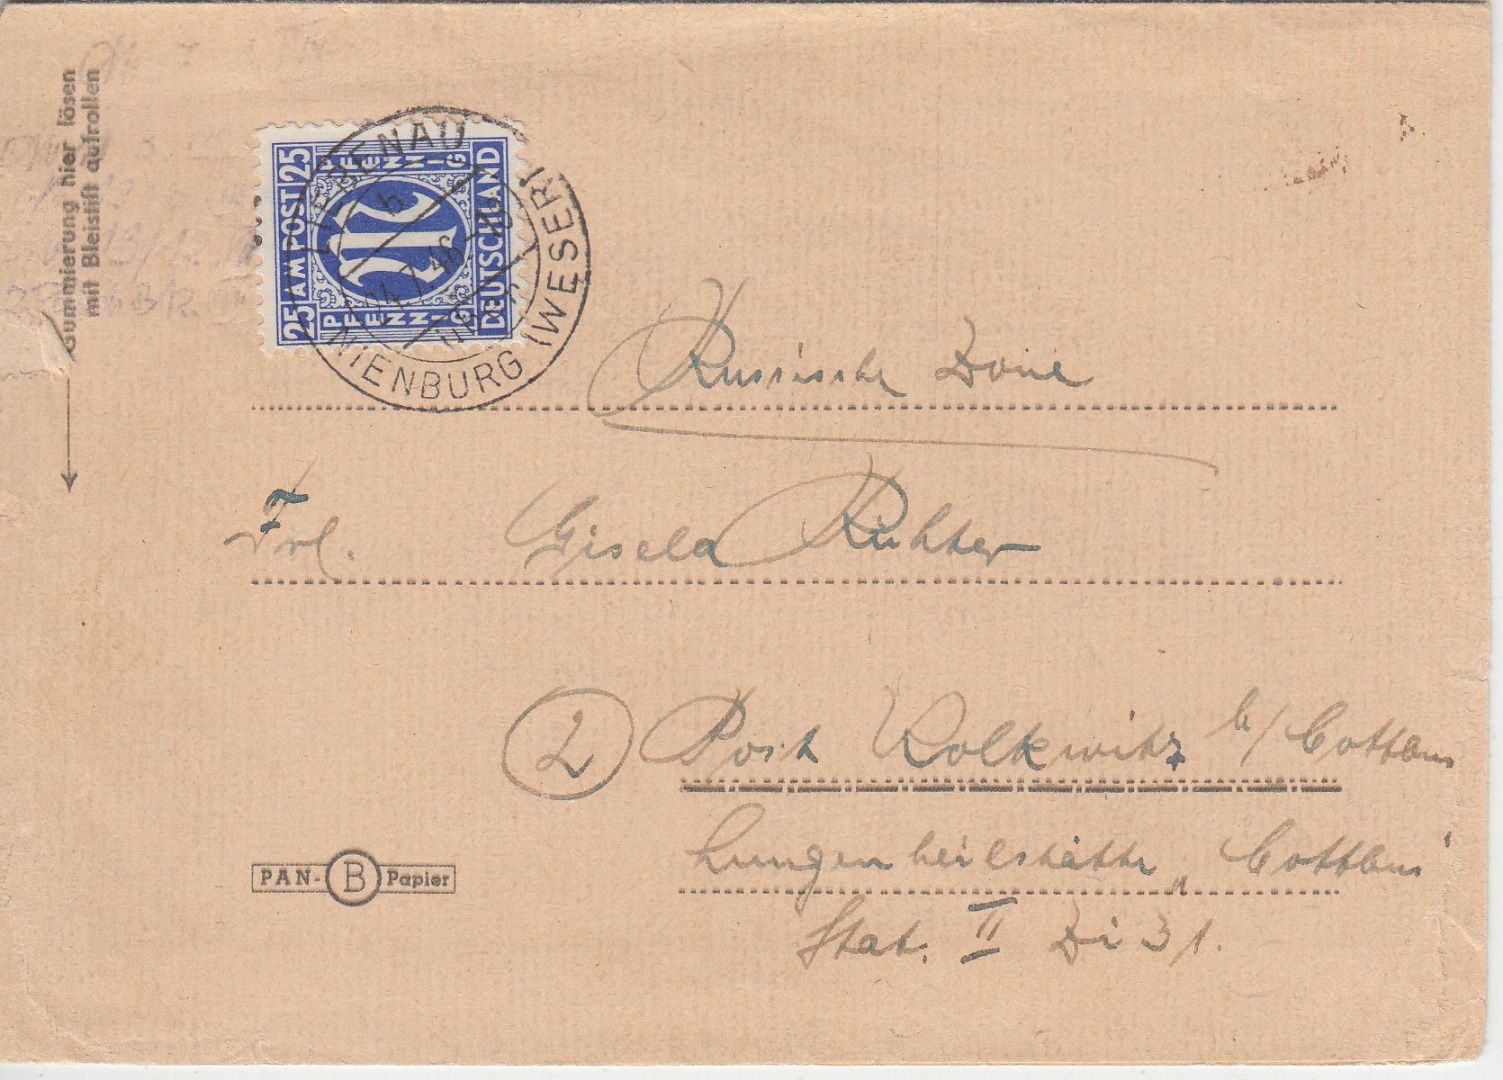 Gummierung hier lösen
mit Bleistift aufrollen
25 AM POST 25
PFENNIG
DEUTSCHLAND
PFENNIG
LIEBENAU
b
24.7.46-18
NIENBURG (WESER)
Russische Zone
Frl. Gisela Richter
2 Post Kolkwitz b/ Cottbus
Lungenheilstätte „Cottbus“
Stat. II Zi 31.
PAN-B Papier